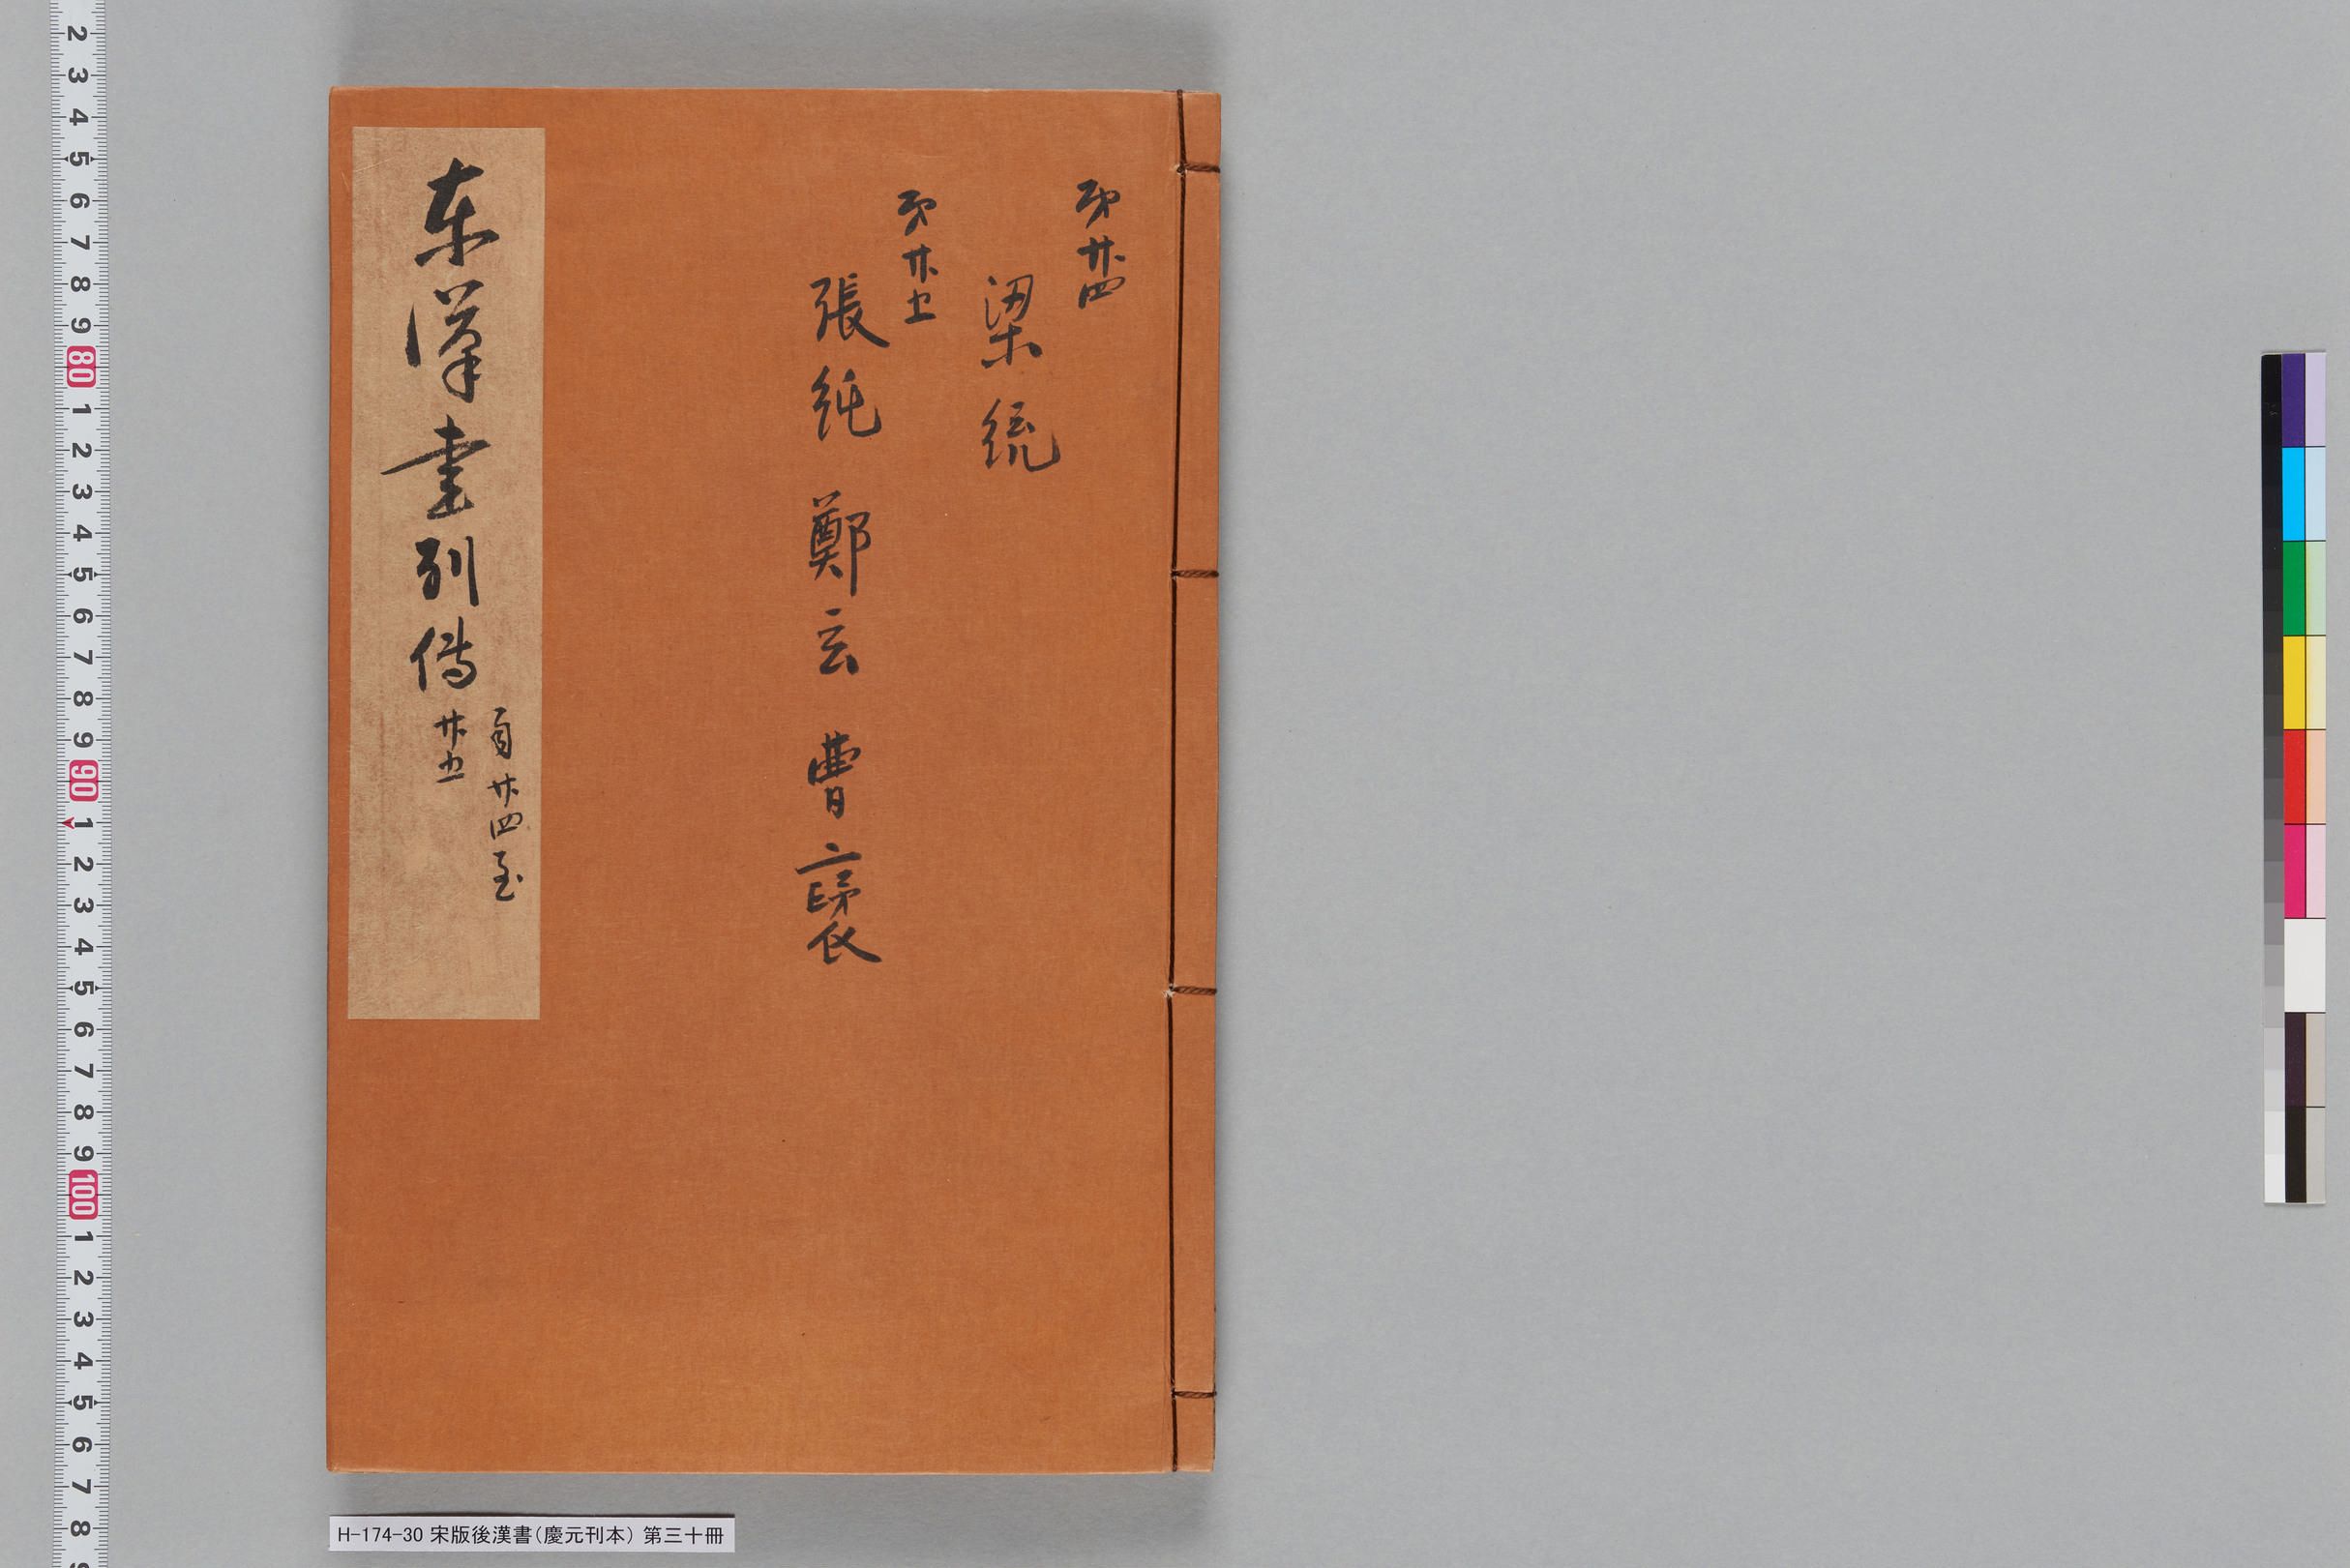 第廿四
梁統
第廿五
張純 鄭玄 曹褒
東漢書列傳 自廿四至
廿五
H-174-30 宋版後漢書(慶元刊本) 第三十冊
2 3 4 5 6 7 8 9 80 1 2 3 4 5 6 7 8 9 90 1 2 3 4 5 6 7 8 9 100 1 2 3 4 5 6 7 8